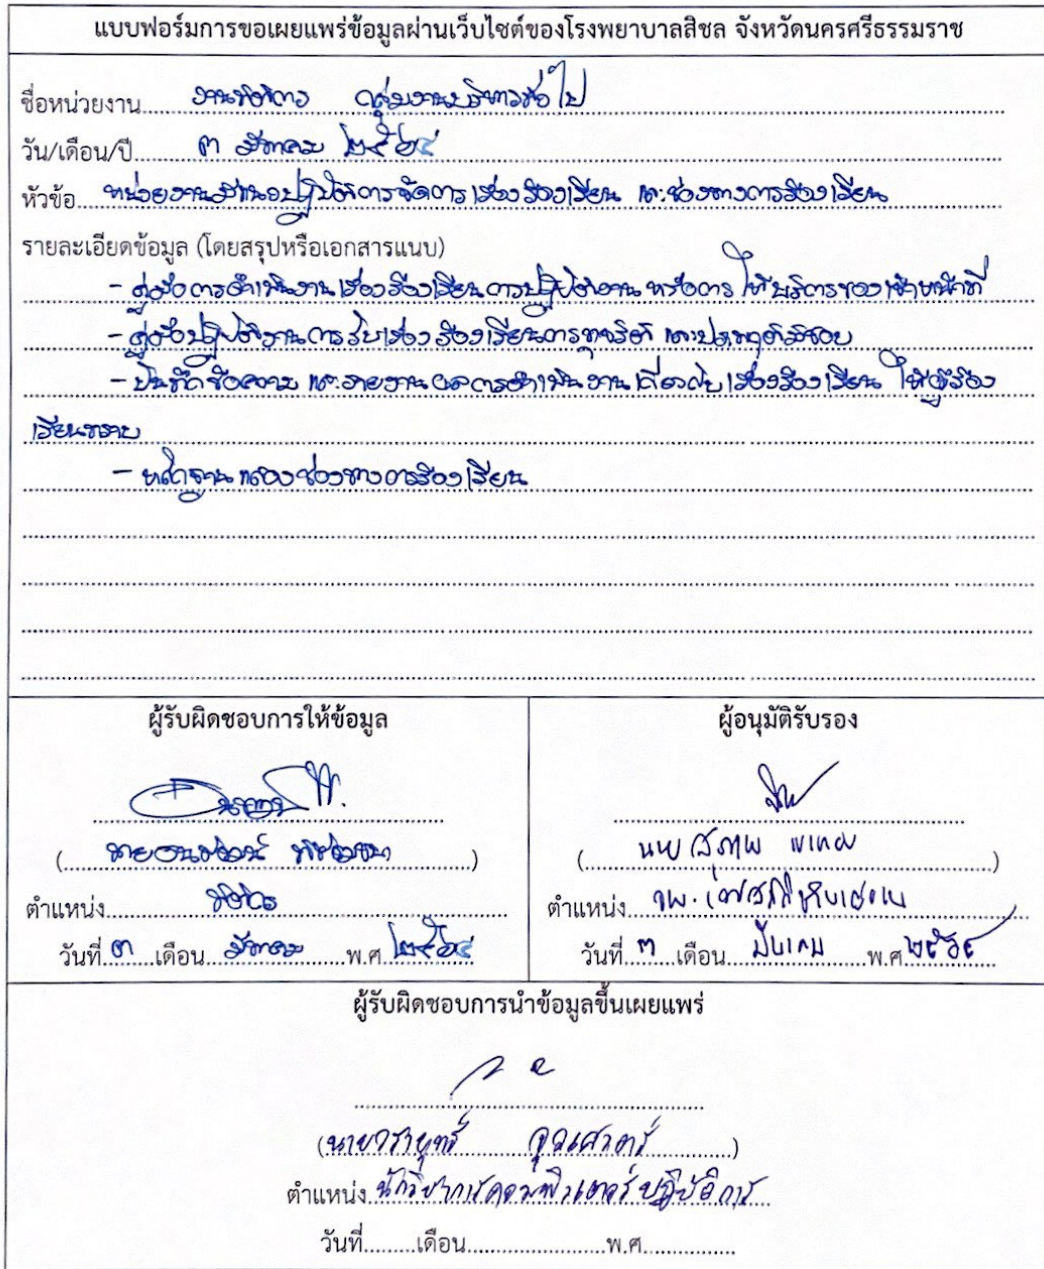 แบบฟอร์มการขอเผยแพร่ข้อมูลผ่านเว็บไซต์ของโรงพยาบาลสิชล จังหวัดนครศรีธรรมราช
ชื่อหน่วยงาน งานนิติการ กลุ่มงานบริหารทั่วไป
วัน/เดือน/ปี ๓ มีนาคม ๒๕๖๔
หัวข้อ หน่วยงานมีแนวปฏิบัติการจัดการเรื่องร้องเรียน และช่องทางการร้องเรียน
รายละเอียดข้อมูล (โดยสรุปหรือเอกสารแนบ)
- คู่มือการดำเนินงานเรื่องร้องเรียนการปฏิบัติงาน หรือการให้บริการของเจ้าหน้าที่
- คู่มือปฏิบัติงานการรับเรื่องร้องเรียนการทุจริต และประพฤติมิชอบ
- บันทึกข้อความ และรายงานผลการดำเนินงานเกี่ยวกับเรื่องร้องเรียน ให้ผู้ร้อง
เรียนทราบ
- หลักฐานแสดงช่องทางการร้องเรียน
ผู้รับผิดชอบการให้ข้อมูล ผู้อนุมัติรับรอง
( นาย ) ( )
ตำแหน่ง นิติกร ตำแหน่ง
วันที่ ๓ เดือน มีนาคม พ.ศ. ๒๕๖๔ วันที่ ๓ เดือน มีนาคม พ.ศ. ๒๕๖๔
ผู้รับผิดชอบการนำข้อมูลขึ้นเผยแพร่
(นายวรายุทธ์ )
ตำแหน่ง นักวิชาการคอมพิวเตอร์ปฏิบัติการ
วันที่ เดือน พ.ศ.